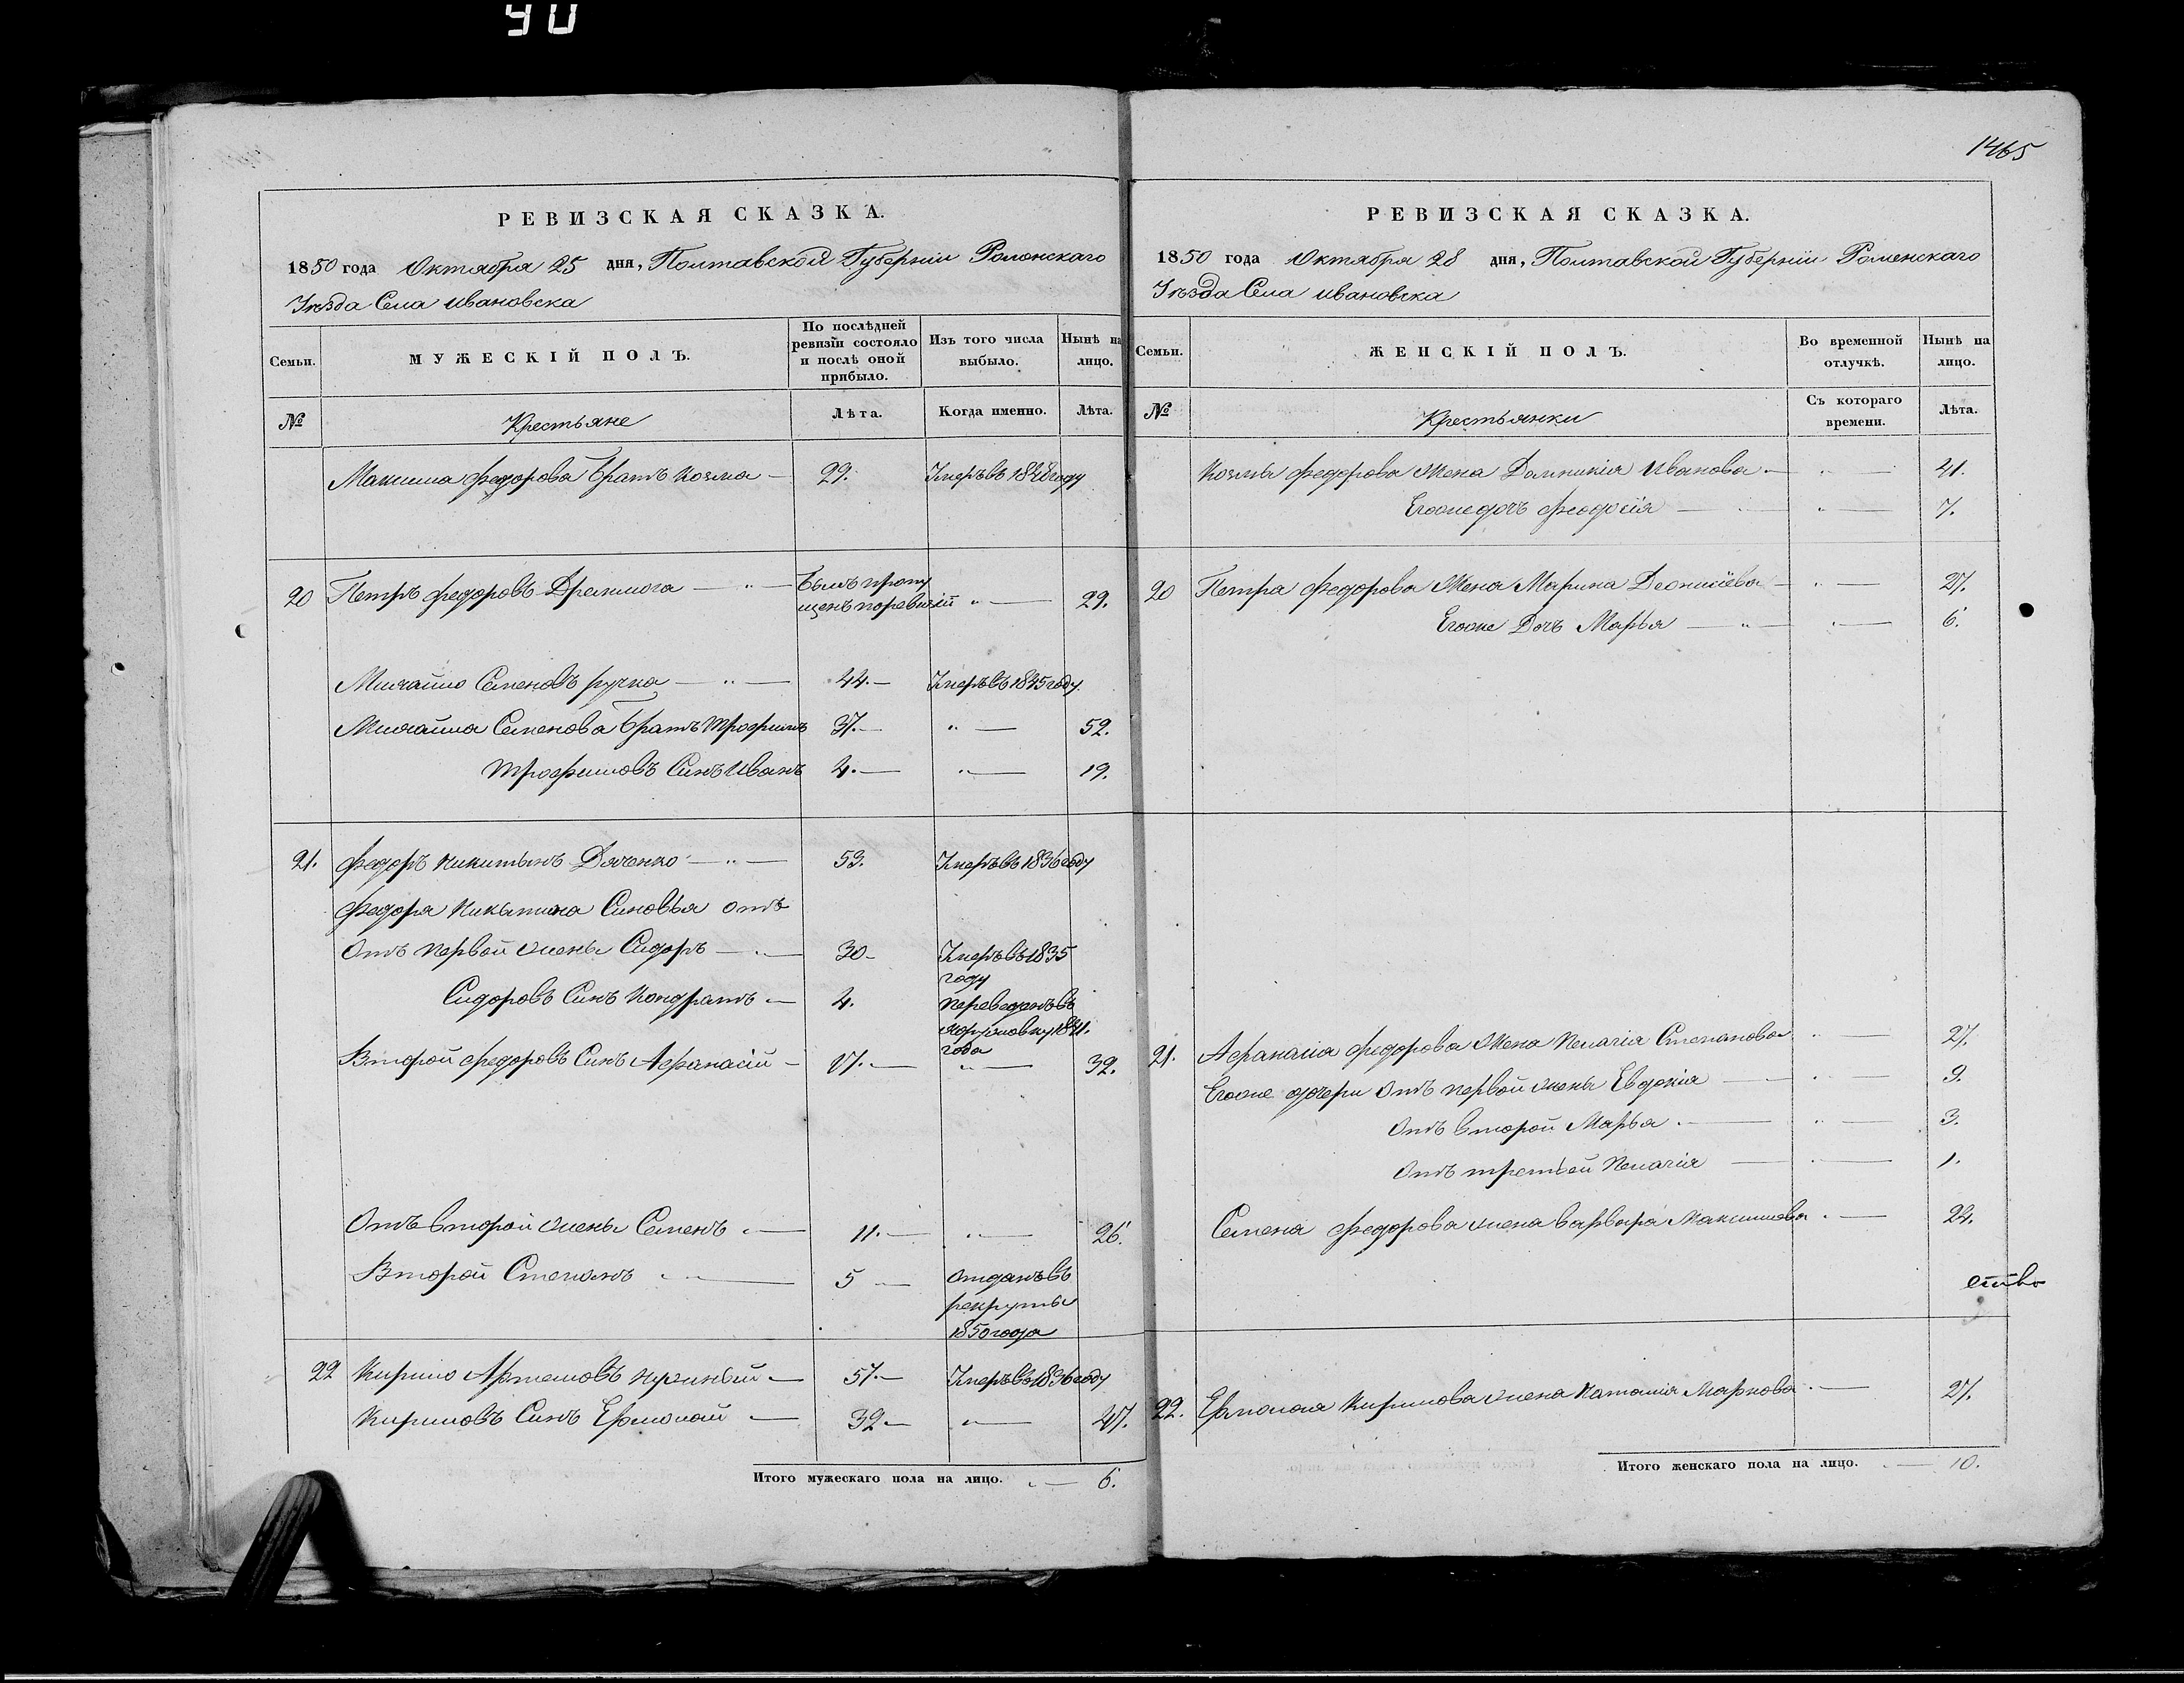 90
1465
РЕВИЗСКАЯ СКАЗКА.
1850 года Октября 25 дня, Полтавской Губернiи Роменскаго
Уѣзда Села ивановска
Семьи. МУЖЕСКIЙ ПОЛЪ. По послѣдней ревизiи состояло и послѣ оной прибыло. Изъ того числа выбыло. Нынѣ на лицо.
№ Крестьяне Лѣта. Когда именно. Лѣта.
Максима федорова братъ козма — 29. Умеръ въ 1848 году
20 Петръ федоровъ — " — Былъ пропу
щенъ поревизiй " — 29.
Михайло Семеновъ ручка — " — 44. — Умеръ въ 1845 году
Михайла Семенова братъ трофимъ 37. — " — 52.
трофимовъ Синъ иванъ 4. — " — 19.
21. федоръ никитинъ Дяченко — " — 53. Умеръ въ 1836 году
Федора никитина Синовья отъ
Отъ первой жены Сидоръ — " — 30 — Умеръ въ 1835
году
Сидоровъ Синъ кондратъ — 4. переведенъ въ
1841.
года
Второй федоровъ Синъ Афанасiй — 17. — " — 32.
Отъ второй жены Семенъ " — 11. — " — 26.
Второй Степанъ " — 5 — отданъ въ
рекруты
1850 года
22 кирило Артемовъ — 57. — Умеръ въ 1836 году
Кириловъ Синъ Ермолай — 32 — " — 47.
Итого мужескаго пола на лицо. " — 6.
РЕВИЗСКАЯ СКАЗКА.
1850 года Октября 28 дня, Полтавской Губернiи Роменскаго
Уѣзда Села ивановска
Семьи. ЖЕНСКIЙ ПОЛЪ. Во временной отлучкѣ. Нынѣ на лицо.
№ Крестьянки Съ котораго времени. Лѣта.
козмы федорова жена Домникiя иванова — " — 41.
Егоже дочъ феодосiя — " — 7.
20 Петра федорова жена Марина Деонисiева — " — 27.
Егоже Дочъ Марья — " — " — 6.
21. Афанасiя федорова жена пелагiя Степанова " — 27.
Егоже дочери отъ первой жены Евдокiя — " — 9.
Отъ второй Марья. — " — 3.
Отъ третьей пелагiя — " — 1.
Семена федорова жена варвара Максимова. — 24.
22. Ермолая кирилова жена наталiя Маркова. — 27.
Итого женскаго пола на лицо. " — 10.